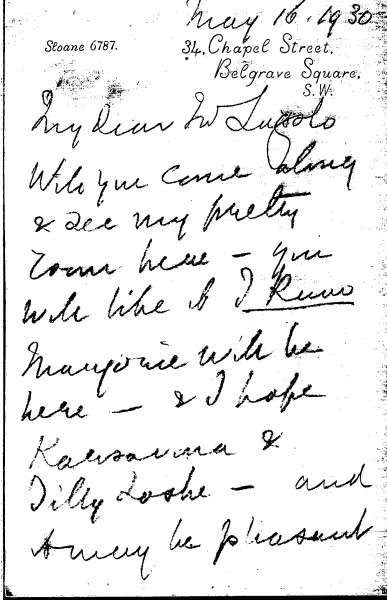 May 16. 1930
Sloane 6787.
34, Chapel Street,
Belgrave Square,
S.W.
My dear Mr
Will you come along
& see my pretty
room here – you
will like it I know
Marjorie will be
here – & I hope
Karsavina &
Tilly Loske – and
it may be pleasant